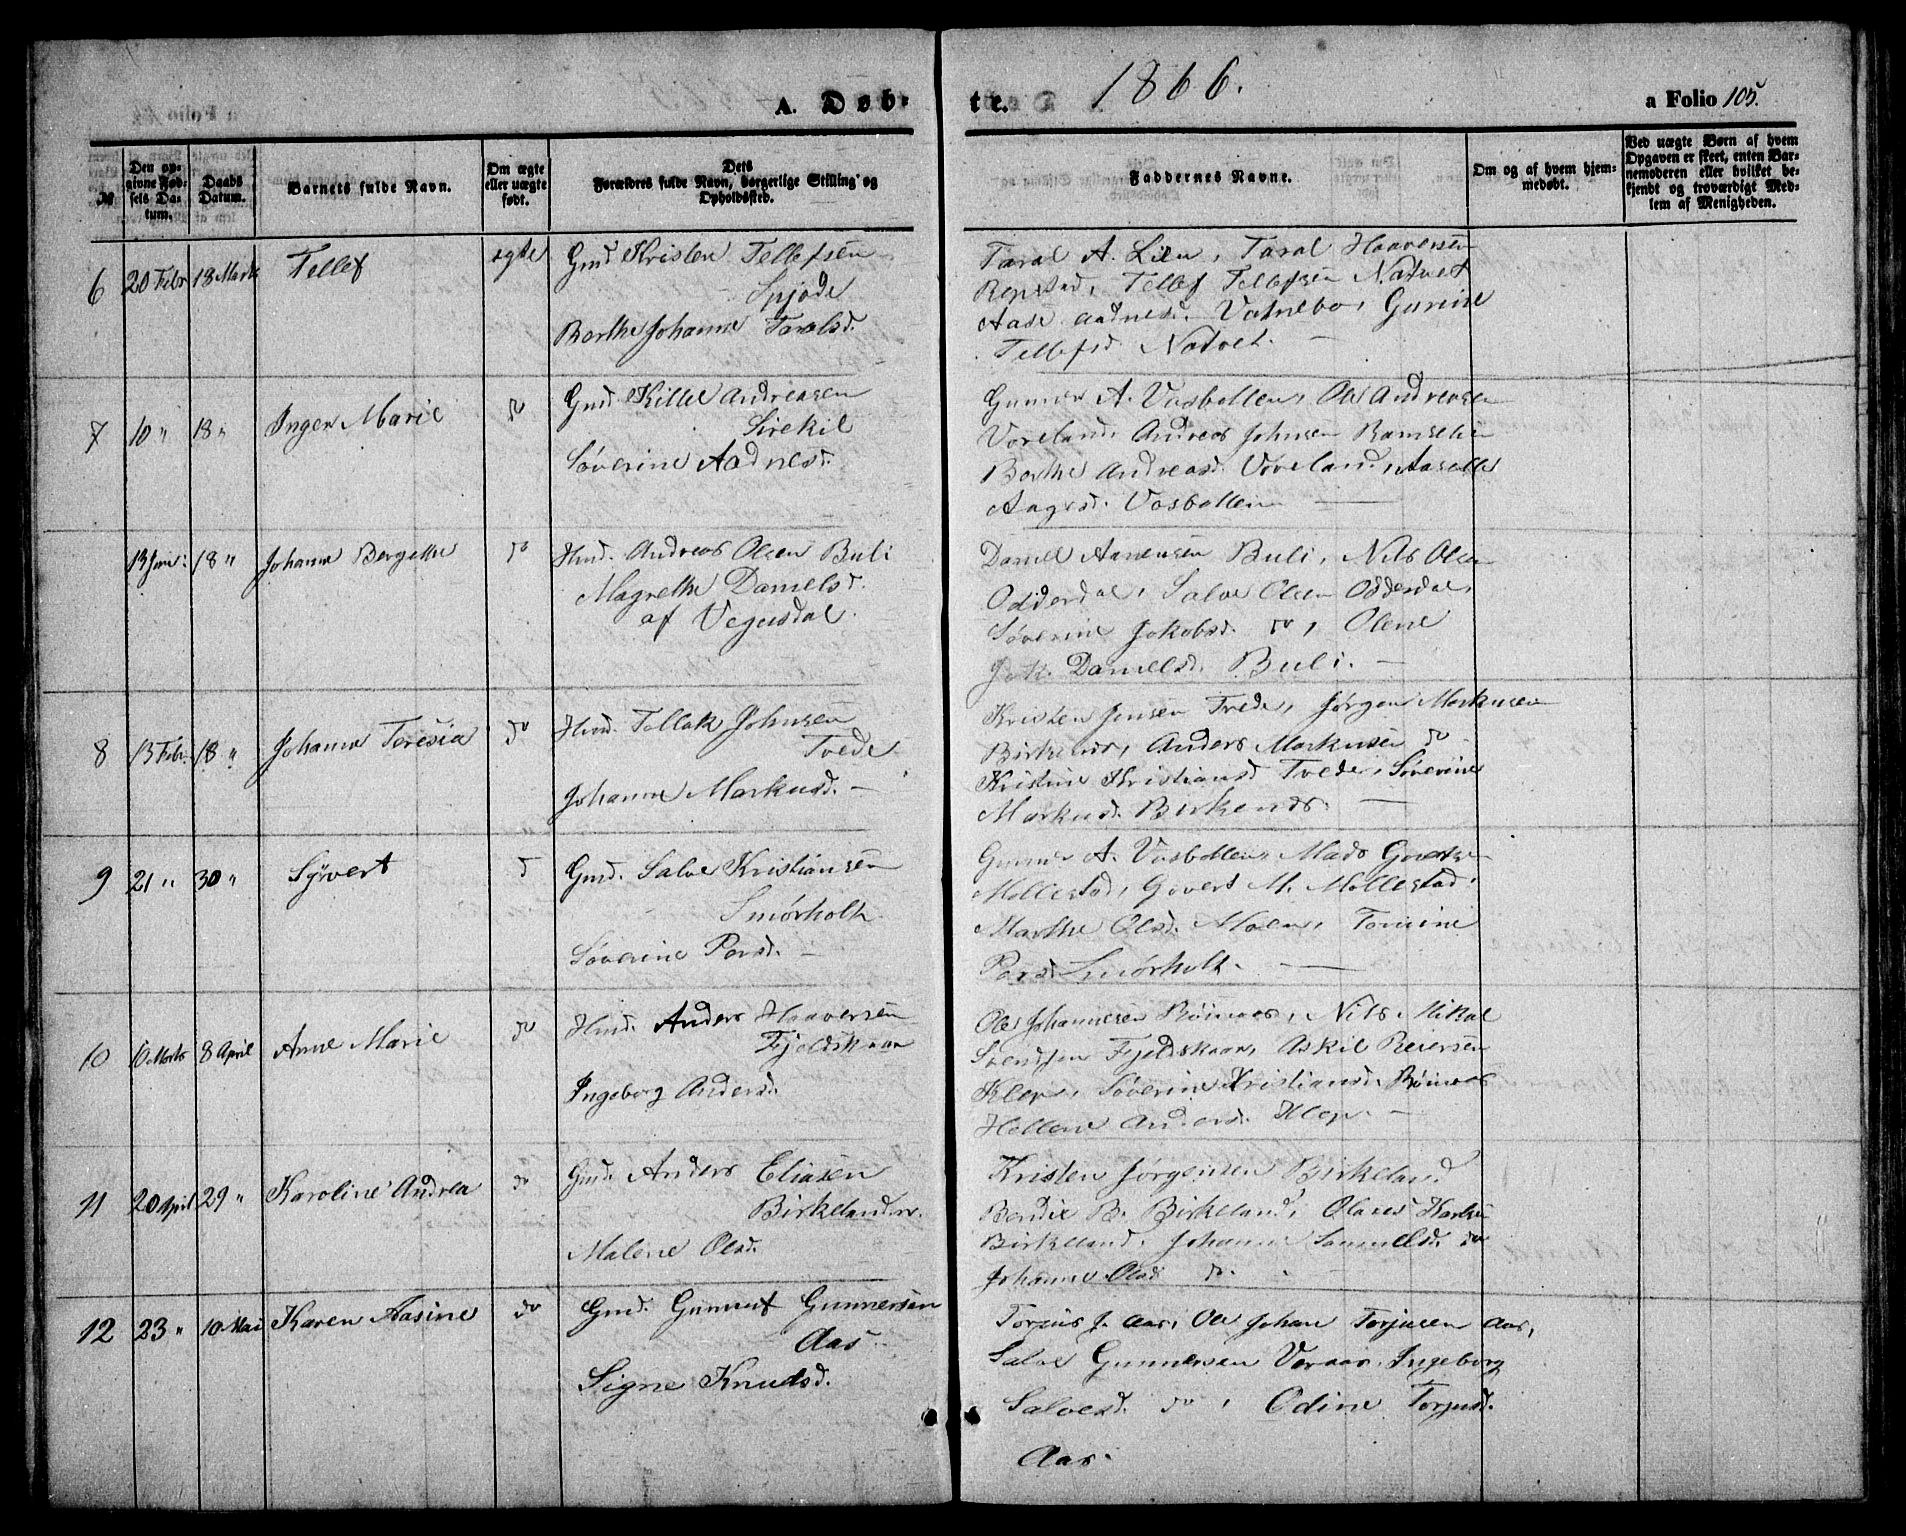 1866.
A. Døb-
te.
a Folio 105.
№
Den op-
givne Fød-
sels Da-
tum.
Daabs
Datum.
Barnets fulde Navn.
Om ægte
eller uægte
født.
Dets
Forældres fulde Navn, borgerlige Stilling og
Opholdssted.
Faddernes Navne.
Om og af hvem hjem-
medøbt.
Ved uægte Børn af hvem
Opgaven er skeet, enten Bar-
nemoderen eller hvilket be-
kjendt og troværdigt Med-
lem af Menigheden.
6 20 Febr 18 Marts Tellef ægte Gmd Kristen Tellefsen
Spjode
Barthe Johanne Taralsd.
Taral A. Lien, Taral Haaversen
Repstad, Tellef Tellefsen Natvet
Aase Aadnesd. Vatnebo, Gurine
Tellefsd. Natvet.
7 10 " 18 " Inger Marie do Gmd. Kille Andreasen
Sirekil
Søverine Aadnesd.
Gunner A. Vasbotten, Ole Andreasen
Voreland, Andreas Johnsen Ramselien
Barthe Andreasd. Voreland, Aaselle
Aagesd. Vasbotten
13 Jan: 18 " Johanne Bergethe do Hmd. Andreas Olsen Buli
Magrethe Danielsd.
af Vegusdal.
Daniel Aanensen Buli, Nils Olsen
Odderdal, Salve Olsen Odderdal,
Søverine Jakobsd. do, Olene
Danielsd. Buli.
8 13 Febr. 18 " Johanne Teresia do Hmd. Tollak Johnsen
Tvede
Johanne Markusd.
Kristen Jensen Tvede, Jørgen Markusen
Birkenes, Anders Markusen do
Kristine Kristiansd Tvede, Søverine
Markusd. Birkenes.
9 21 " 30 " Syvert d Gmd. Salve Kristiansen
Smørholt
Søverine Persd.
Gunner A. Vasbotten, Mads
Møllestad, Govert M. Møllestad.
Marthe Olsd. Moen, Tomine
Persd Smørholt.
10 10 Marts 8 April Anne Marie do Hmd. Anders Haaversen
Fjeldskaar
Ingeborg Andersd.
Ole Johannesen Røinaas, Nils Mikal
Svendsen Fjeldskaar, Askil Reiersen
Klep, Søverine Kristiansd. Røinaas
Hellene Andersd. Klep.
11 20 April 29 " Karoline Andrea do Gmd. Anders Eliasen
Birkeland
Malene Olsd.
Kristen Jørgensen Birkeland
Bendix B. Birkeland, Olaves
Birkeland, Johanne Samuelsd. do
Johanne Olsd do.
12 23 " 10 Mai Karen Aasine do Gmd. Gunnuf Gunnersen
Aas
Signe Knudsd.
Torjus J. Aas, Ole Johan Torjusen Aas,
Salve Gunnersen Veraas, Ingeborg
Salvesd. do, Odine Torjusd.
Aas.